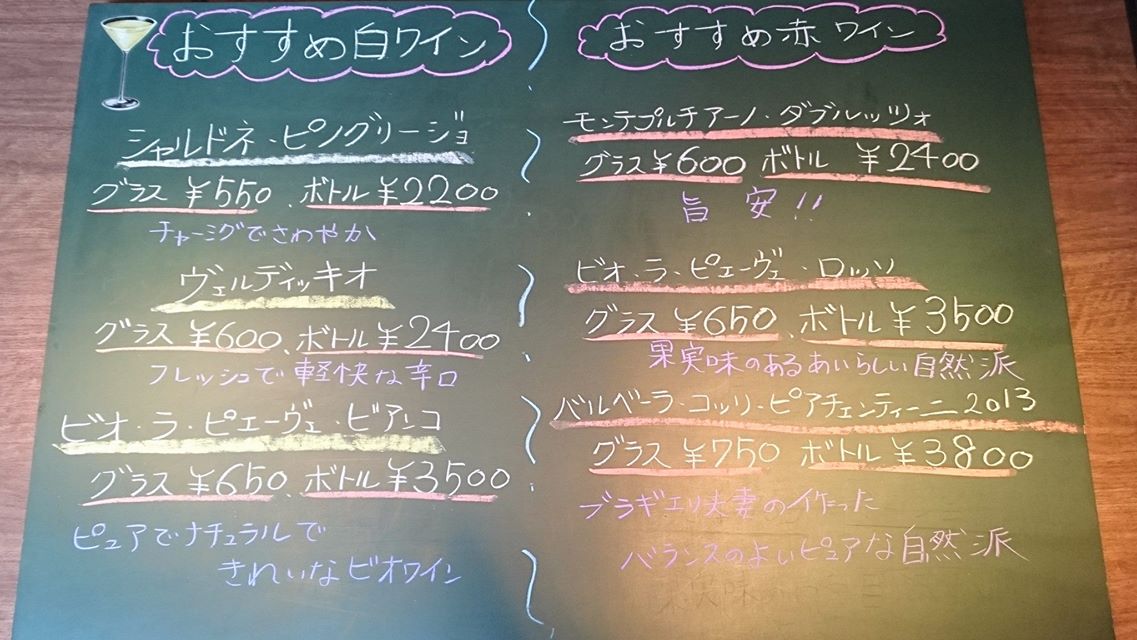 おすすめ白ワイン
シャルドネ・ピングリージョ
グラス ¥550、ボトル ¥2200
チャーミングでさわやか
ヴェルディッキオ
グラス ¥600、ボトル ¥2400
フレッシュで軽快な辛口
ビオ・ラ・ピエーヴェ・ビアンコ
グラス ¥650、ボトル ¥3500
ピュアでナチュラルで
きれいなビオワイン
おすすめ赤ワイン
モンテプルチアーノ・ダブルッツォ
グラス ¥600 ボトル ¥2400
旨安!!
ビオ・ラ・ピエーヴェ・ロッソ
グラス ¥650、ボトル ¥3500
果実味のあるあいらしい自然派
バルベーラ・コッリ・ピアチェンティーニ 2013
グラス ¥750 ボトル ¥3800
ブラギエリ夫妻の作った
バランスのよいピュアな自然派